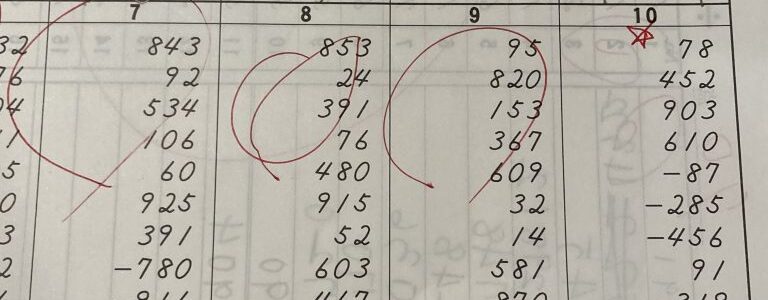 7 8 9 10
32 843 853 95 78
76 92 24 820 452
04 534 391 153 903
1 106 76 367 610
5 60 480 609 -87
0 925 915 32 -285
3 391 52 14 -456
2 -780 603 581 91